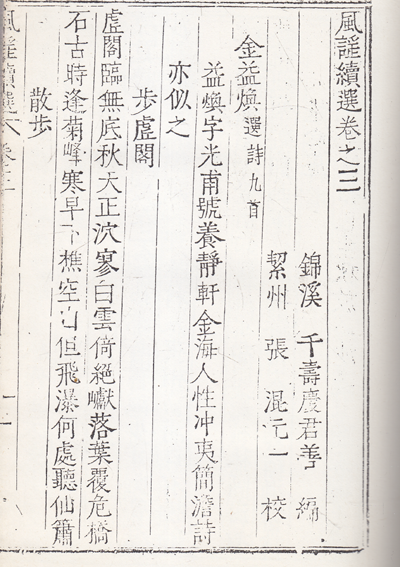 風謠續選卷之三
錦溪 千壽慶君善 編
絜州 張混元一 校
金益煥 選詩九首
益煥字光甫號養靜軒金海人性冲夷簡澹詩
亦似之
步虛閣
虛閣臨無底秋天正泬寥白雲倚絶巘落葉覆危橋
石古時逢菊峰寒早下樵空山但飛瀑何處聽仙簫
散步
風謠續選